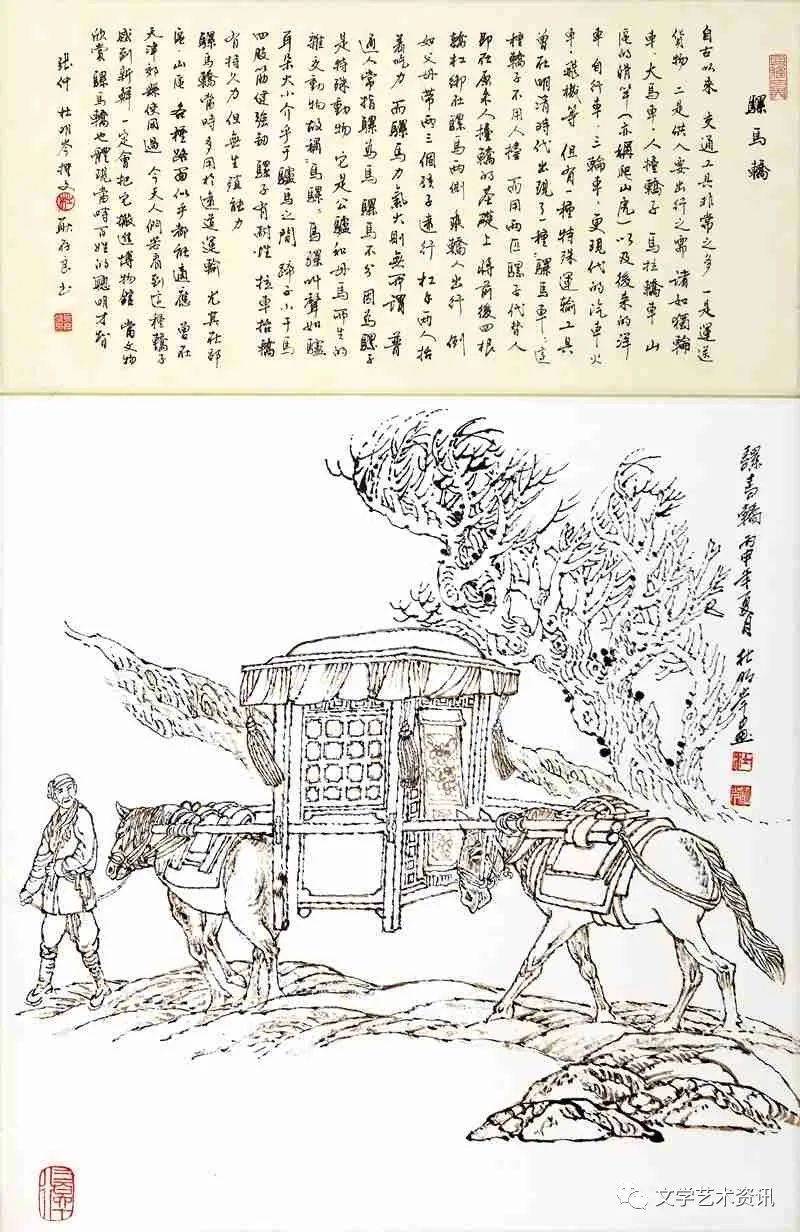 騾馬轎
自古以來 交通工具非常之多 一是運送
貨物 二是供人要出行之需 諸如獨輪
車、大馬車、人擡轎子 馬拉轎車 山
區的滑竿(亦稱爬山虎)以及後來的洋
車 自行車、三輪車 更現代的汽車火
車、飛機等 但有一種特殊運輸工具
曾在明清時代出現了一種“騾馬車”這
種轎子不用人擡 而用兩匹騾子代替人
即在原來人擡轎的基礎上 將前後四根
轎杠綁在騾馬兩側 乘轎人出行 倒
如父母带两三個孩子遠行 杠夫两人抬
着吃力 而騾馬力氣大則無所謂 普
通人常指騾爲馬 騾馬不分 因爲騾子
是特殊動物 它是公驢和母馬所生的
雜交動物 故稱“馬騾” 馬騾叫聲如驢
耳朵大小介乎于驢馬之間 蹄子小于馬
四肢筋健強勁 騾子有耐性 拉車抬轎
有持久力 但無生殖能力
騾馬轎當時多用於遠道運輸 尤其在郊
區、山區 各種路面似乎都能適應 曾在
天津郊縣使用過 今天人們若看到這種轎子
感到新鮮 一定會把它搬進博物館 當文物
欣賞 騾馬轎也體現當時百姓的聰明才智
張仲 杜明岑撰文 耿存良書
騾馬轎 丙申年夏月 杜明岑畫
文学艺术资讯